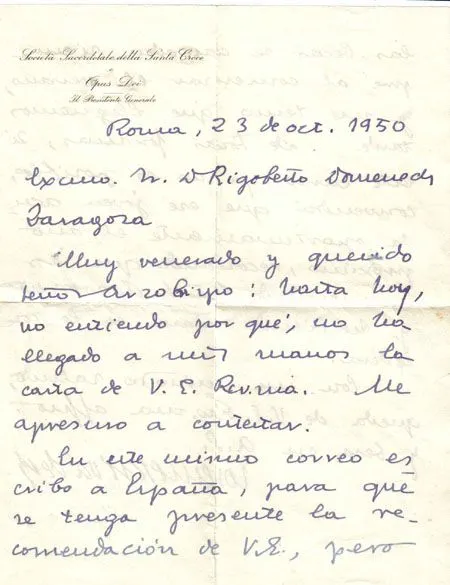 Società Sacerdotale della Santa Croce
e
Opus Dei
Il Presidente Generale
Roma, 23 de oct. 1950
Excmo. Sr. D Rigoberto Domenech
Zaragoza
Muy venerado y querido
señor Arzobispo: hasta hoy,
no entiendo por qué, no ha
llegado a mis manos la
carta de V. E. Revma. Me
apresuro a contestar.
En este mismo correo es
cribo a España, para que
se tenga presente la re-
comendación de V.E., pero